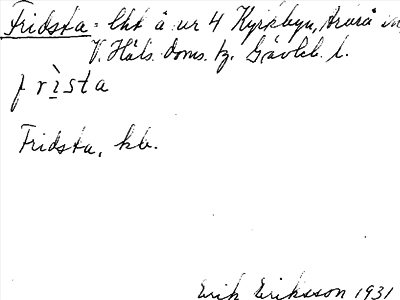 Fridsta = lht å nr 4 Kyrkbyn, Arbrå sn,
V. Häls. doms. tz. Gävleb. l.
frìsta
Fridsta, kb.
Erik Eriksson 1931